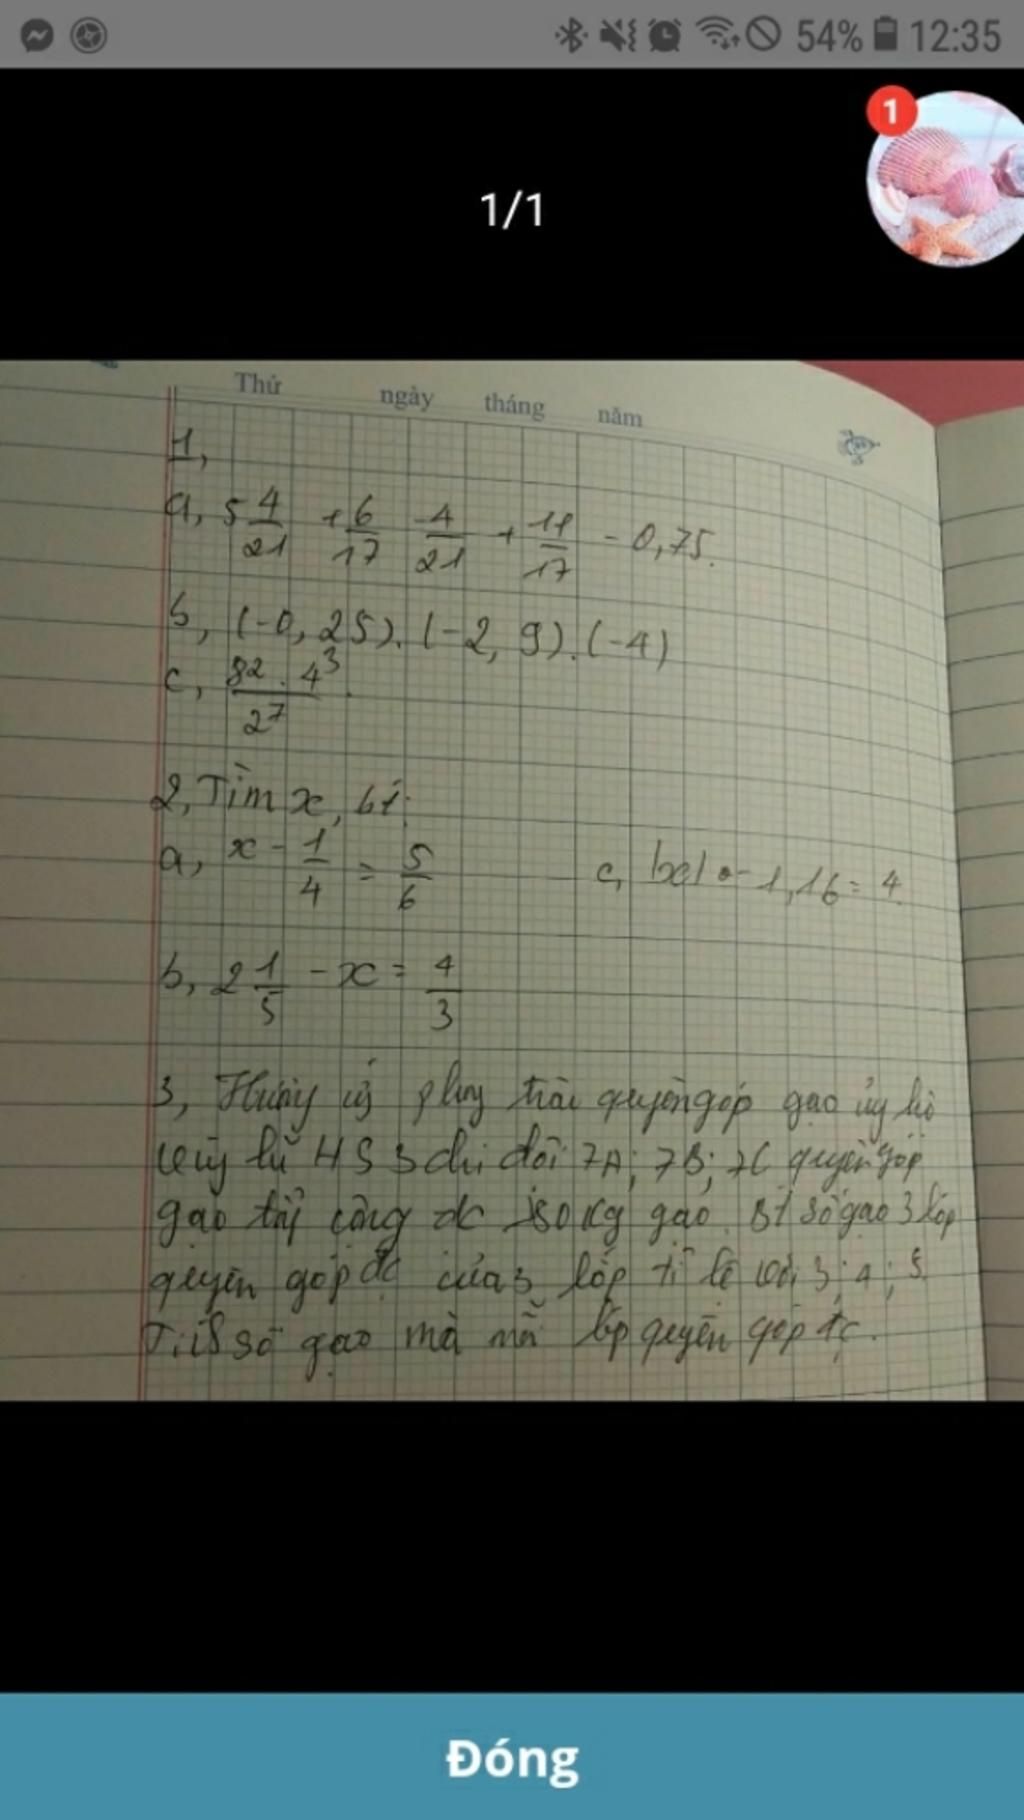 54% 12:35
1
1/1
Thứ ngày tháng năm
1,
a, 5 4/21 + 6/17 - 4/21 + 11/17 - 0,75.
b, (-0,25).(-2,9).(-4)
c, 82.4³/2⁷.
2, Tìm x, bt:
a, x - 1/4 = 5/6 c, |x| - 1,16 = 4.
b, 2 1/5 - x = 4/3
3, trào quyên góp gạo ủng hộ
lũ HS 3 chi đội 7A; 7B; 7C quyên góp
gạo cộng đc kg gạo. Bt số gạo 3 lớp
quyên góp đc của 3 lớp tỉ lệ với 3; 4; 5.
số gạo mà mỗi lớp quyên góp đc.
Đóng